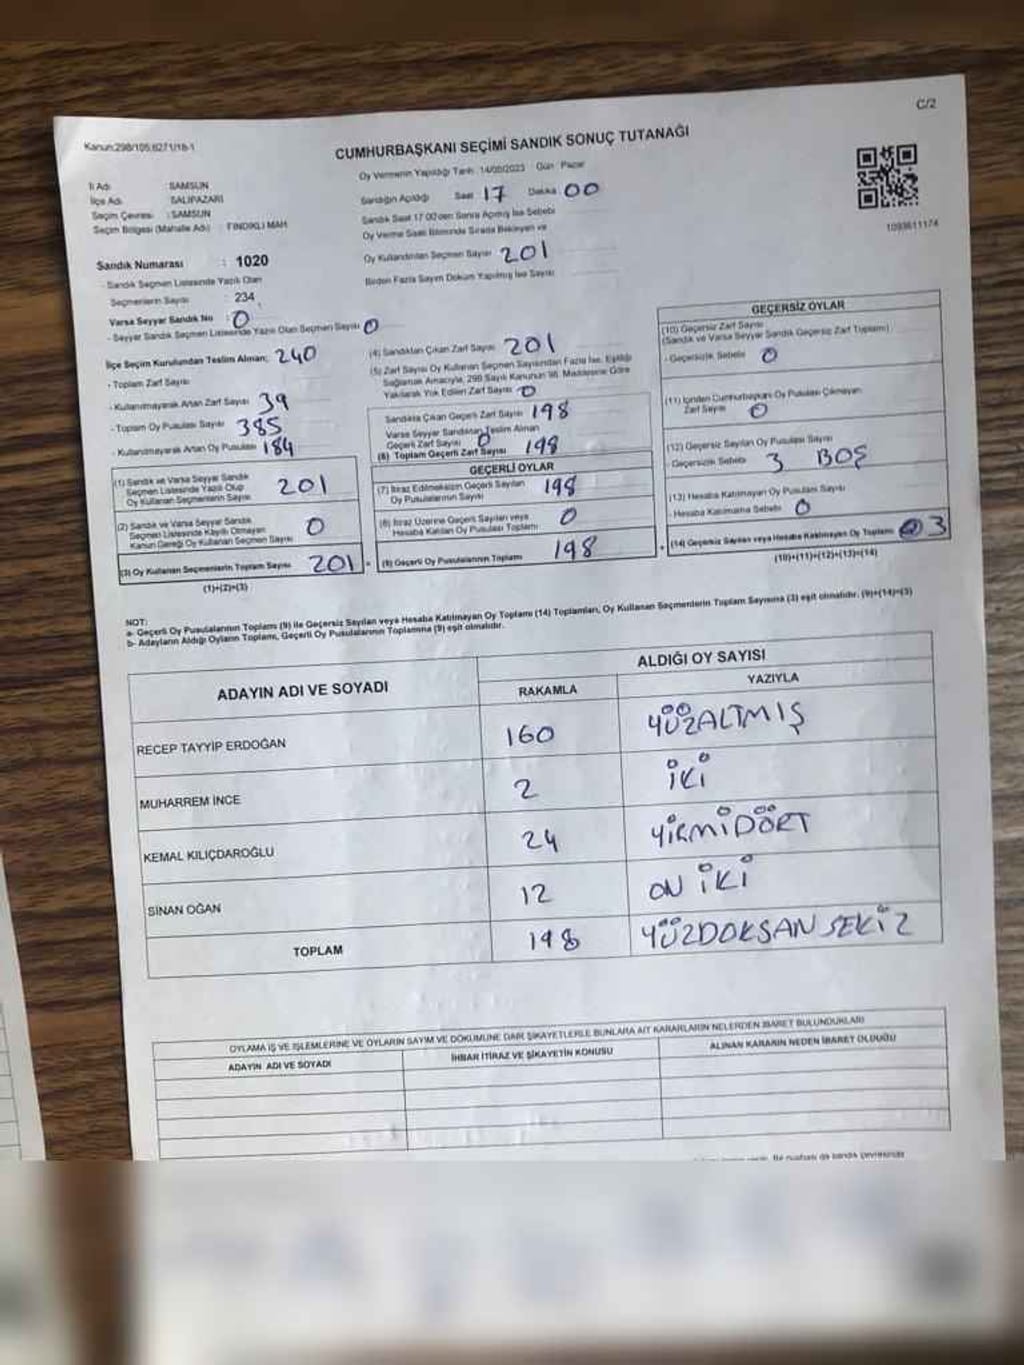 C/2
Kanun:298/105,6271/18-1
CUMHURBAŞKANI SEÇİMİ SANDIK SONUÇ TUTANAĞI
İl Adı : SAMSUN
İlçe Adı : SALIPAZARI
Seçim Çevresi : SAMSUN
Seçim Bölgesi (Mahalle Adı) : FINDIKLI MAH
Sandık Numarası : 1020
- Sandık Seçmen Listesinde Yazılı Olan
Seçmenlerin Sayısı : 234
Varsa Seyyar Sandık No : 0
- Seyyar Sandık Seçmen Listesinde Yazılı Olan Seçmen Sayısı 0
Oy Vermenin Yapıldığı Tarih : 14/05/2023 Gün : Pazar
Sandığın Açıldığı Saat : 17 Dakika 00
Sandık Saat 17.00'den Sonra Açılmış İse Sebebi
Oy Verme Saati Bitiminde Sırada Bekleyen ve
Oy Kullandırılan Seçmen Sayısı 201
Birden Fazla Sayım Döküm Yapılmış İse Sayısı
1093611174
İlçe Seçim Kurulundan Teslim Alınan; 240
- Toplam Zarf Sayısı
- Kullanılmayarak Artan Zarf Sayısı 39
- Toplam Oy Pusulası Sayısı 385
- Kullanılmayarak Artan Oy Pusulası 184
(1) Sandık ve Varsa Seyyar Sandık
Seçmen Listesinde Yazılı Olup
Oy Kullanan Seçmenlerin Sayısı 201
(2) Sandık ve Varsa Seyyar Sandık
Seçmen Listesinde Kayıtlı Olmayan
Kanun Gereği Oy Kullanan Seçmen Sayısı 0
(3) Oy Kullanan Seçmenlerin Toplam Sayısı 201
(1)+(2)=(3)
(4) Sandıktan Çıkan Zarf Sayısı 201
(5) Zarf Sayısı Oy Kullanan Seçmen Sayısından Fazla İse, Eşitliği
Sağlamak Amacıyla, 298 Sayılı Kanunun 98. Maddesine Göre
Yakılarak Yok Edilen Zarf Sayısı 0
Sandıkta Çıkan Geçerli Zarf Sayısı 198
Varsa Seyyar Sandıktan Teslim Alınan
Geçerli Zarf Sayısı 0
(6) Toplam Geçerli Zarf Sayısı 198
GEÇERLİ OYLAR
(7) İtiraz Edilmeksizin Geçerli Sayılan
Oy Pusulalarının Sayısı 198
(8) İtiraz Üzerine Geçerli Sayılan veya
Hesaba Katılan Oy Pusulası Toplamı 0
(9) Geçerli Oy Pusulalarının Toplamı 198
GEÇERSİZ OYLAR
(10) Geçersiz Zarf Sayısı
(Sandık ve Varsa Seyyar Sandık Geçersiz Zarf Toplamı)
- Geçersizlik Sebebi 0
(11) İçinden Cumhurbaşkanı Oy Pusulası Çıkmayan
Zarf Sayısı 0
(12) Geçersiz Sayılan Oy Pusulası Sayısı
- Geçersizlik Sebebi 3 BOŞ
(13) Hesaba Katılmayan Oy Pusulası Sayısı
- Hesaba Katılmama Sebebi 0
(14) Geçersiz Sayılan veya Hesaba Katılmayan Oy Toplamı 3
(10)+(11)+(12)+(13)=(14)
NOT:
a- Geçerli Oy Pusulalarının Toplamı (9) ile Geçersiz Sayılan veya Hesaba Katılmayan Oy Toplamı (14) Toplamları, Oy Kullanan Seçmenlerin Toplam Sayısına (3) eşit olmalıdır. (9)+(14)=(3)
b- Adayların Aldığı Oyların Toplamı, Geçerli Oy Pusulalarının Toplamına (9) eşit olmalıdır.
ADAYIN ADI VE SOYADI
ALDIĞI OY SAYISI
RAKAMLA YAZIYLA
RECEP TAYYİP ERDOĞAN 160 YÜZALTMIŞ
MUHARREM İNCE 2 İKİ
KEMAL KILIÇDAROĞLU 24 YİRMİDÖRT
SİNAN OĞAN 12 ON İKİ
TOPLAM 198 YÜZDOKSAN SEKİZ
OYLAMA İŞ VE İŞLEMLERİNE VE OYLARIN SAYIM VE DÖKÜMÜNE DAİR ŞİKAYETLERLE BUNLARA AİT KARARLARIN NELERDEN İBARET BULUNDUKLARI
ADAYIN ADI VE SOYADI İHBAR İTİRAZ VE ŞİKAYETİN KONUSU ALINAN KARARIN NEDEN İBARET OLDUĞU